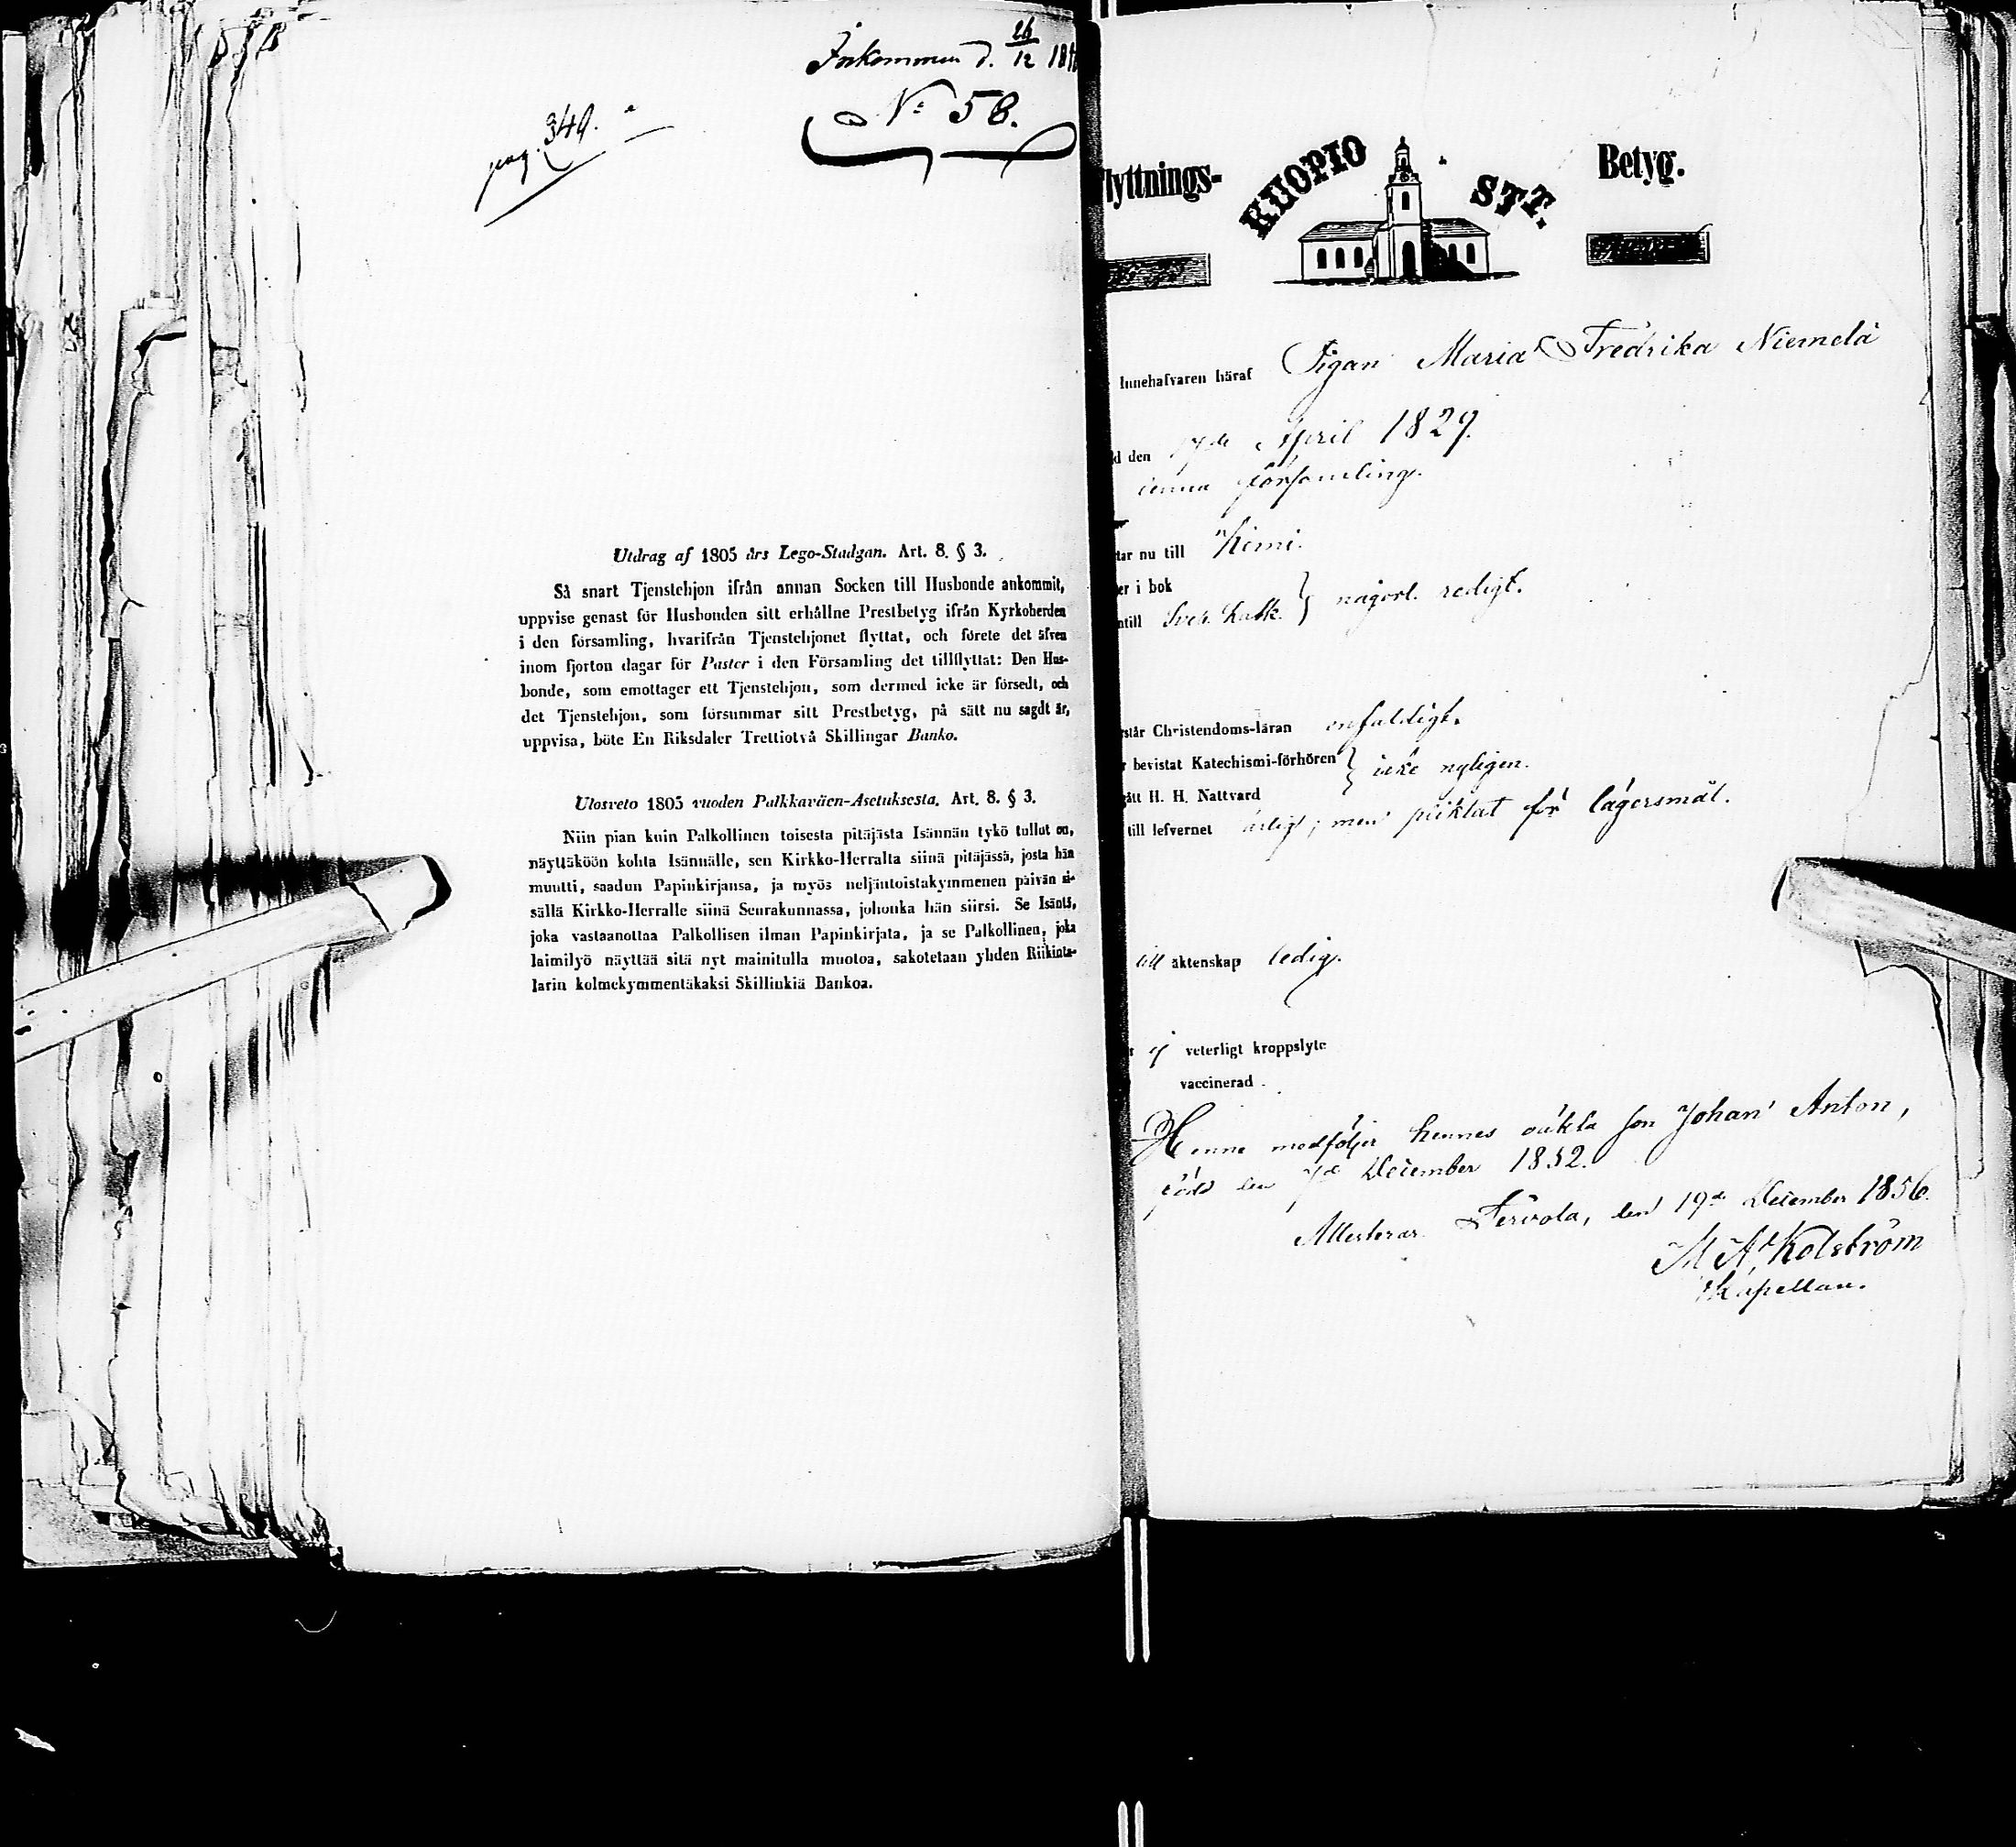 Inkommen d. 26/12 1856
No 58.
pag. 349.
Utdrag af 1805 års Lego-Stadgan. Art. 8. § 3.
Så snart Tjenstehjon ifrån annan Socken till Husbonde ankommit,
uppvise genast för Husbonden sitt erhållne Prestbetyg ifrån Kyrkoherden
i den församling, hvarifrån Tjenstehjonet flyttat, och förete det äfven
inom fjorton dagar för Pastor i den Församling det tillflyttat: Den Hus-
bonde, som emottager ett Tjenstehjon, som dermed icke är försedt, och
det Tjenstehjon, som försummar sitt Prestbetyg, på sätt nu sagdt är,
uppvisa, böte En Riksdaler Trettiotvå Skillingar Banko.
Ulosveto 1805 vuoden Palkkaväen-Asetuksesta. Art. 8. § 3.
Niin pian kuin Palkollinen toisesta pitäjästa Isännän tykö tullut on,
näyttäköön kohta Isännälle, sen Kirkko-Herralta siinä pitäjässä, josta hän
muutti, saadun Papinkirjansa, ja myös neljäntoistakymmenen päivän si-
sällä Kirkko-Herralle siinä Seurakunnassa, johonka hän siirsi. Se Isäntä,
joka vastaanottaa Palkollisen ilman Papinkirjata, ja se Palkollinen, joka
laimilyö näyttää sitä nyt mainitulla muotoa, sakotetaan yhden Riikinta-
larin kolmekymmentäkaksi Skillinkiä Bankoa.
lyttnings- KUOPIO STT. Betyg.
Innehafvaren häraf Pigan Maria Fredrika Niemelä
d den 17de April 1829.
denna församling.
tar nu till Kemi.
er i bok
ntill Sveb. Katk. } någorl. redigt.
står Christendoms-läran enfaldigt.
r bevistat Katechismi-förhören } icke nyligen.
gått H. H. Nattvard
till lefvernet ärligt; men pliktat för lägersmål.
till äktenskap ledig.
r ej veterligt kroppslyte
vaccinerad
Henne medföljer hennes oäkta son Johan Anton,
född den 7de December 1852.
Attesterar Tervola, den 19de December 1856.
Kolström
Kapellan.